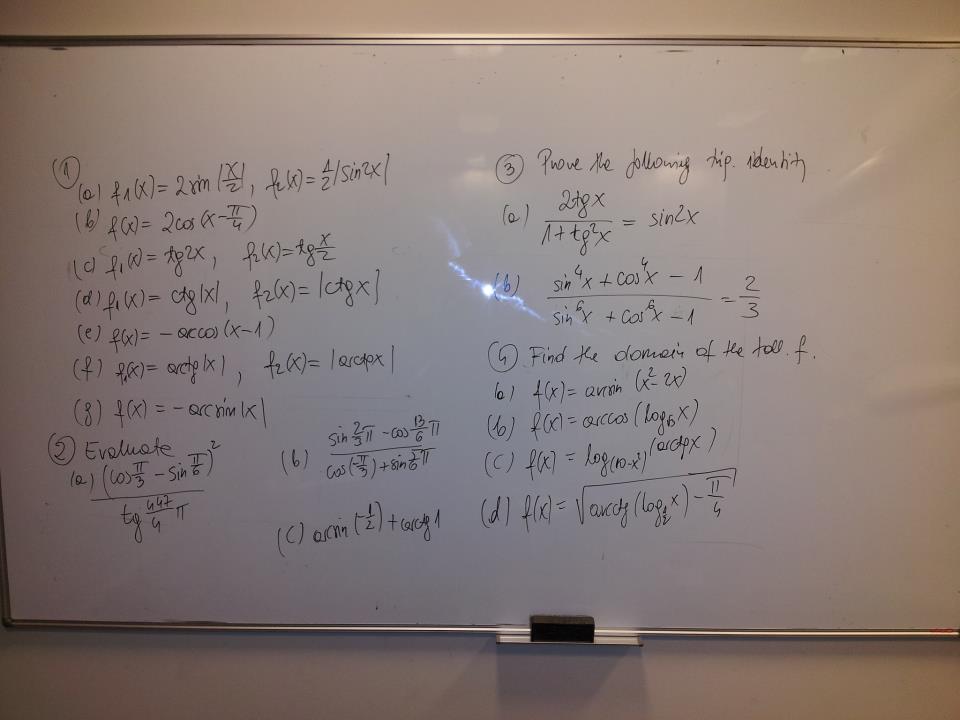 ①
(a) f₁(x) = 2sin|x/2|, f₂(x) = 1/2|sin2x|
(b) f(x) = 2cos(x - π/4)
(c) f₁(x) = tg2x, f₂(x) = tg x/2
(d) f₁(x) = ctg|x|, f₂(x) = |ctgx|
(e) f(x) = -arccos(x-1)
(f) f₁(x) = arctg|x|, f₂(x) = |arctgx|
(g) f(x) = -arcsin|x|
② Evaluate
(a) (cos π/3 - sin π/6)² / tg 447/4 π
(b) (sin 2/3 π - cos 13/6 π) / (cos(-π/3) + sin 7/6 π)
(c) arcsin(-1/2) + arctg1
③ Prove the following trig. identity
(a) 2tgx / (1+tg²x) = sin2x
(b) (sin⁴x + cos⁴x - 1) / (sin⁶x + cos⁶x - 1) = 2/3
④ Find the domain of the foll. f.
(a) f(x) = arcsin(x² - 2x)
(b) f(x) = arccos(log x)
(c) f(x) = log₍₁₀₋ₓ²₎(arctgx)
(d) f(x) = √(arcctg(log_{1/2} x) - π/4)